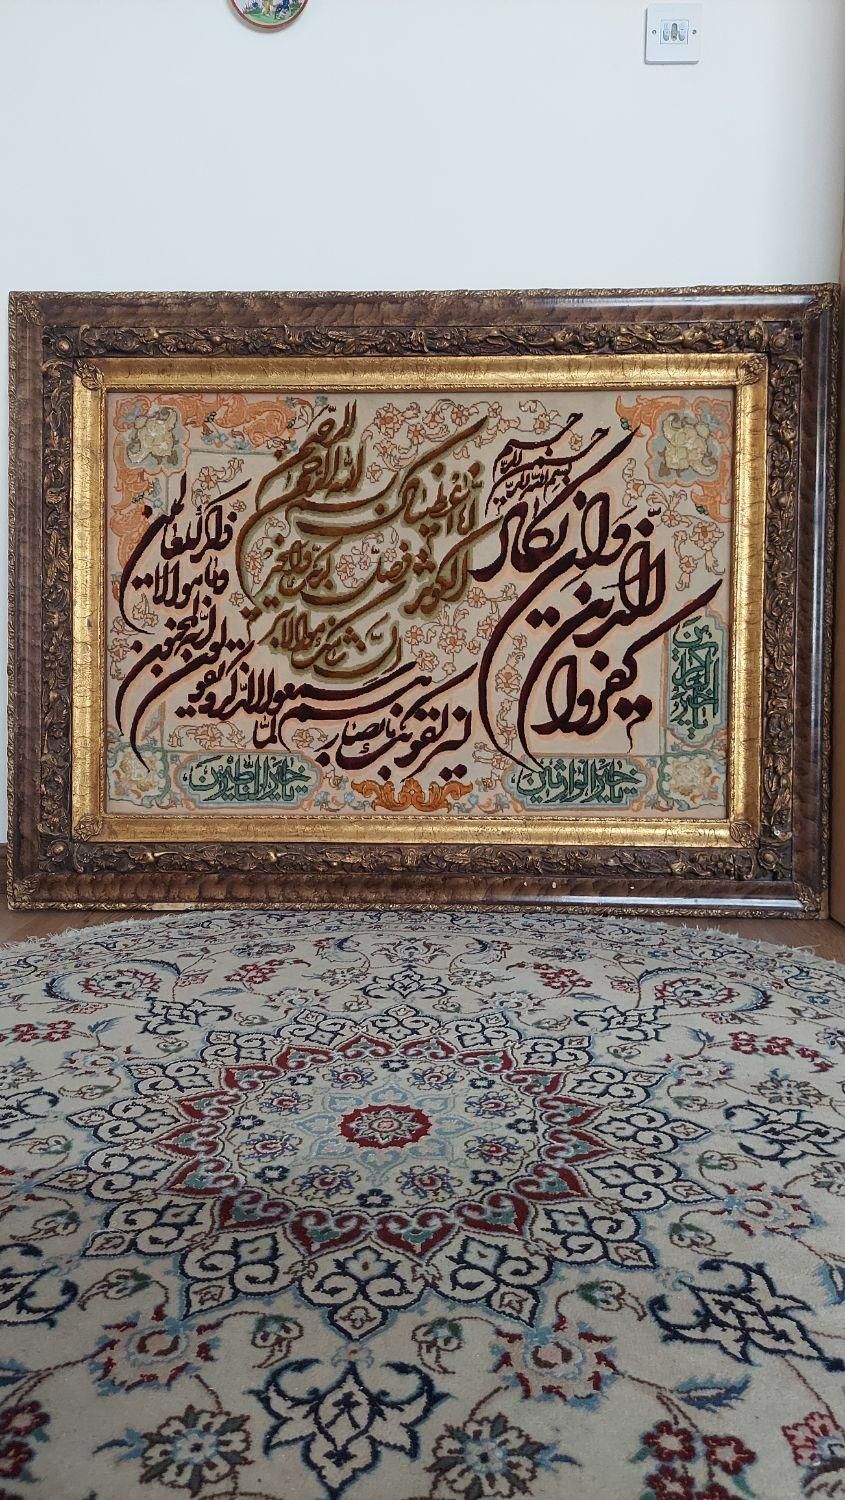 بسم الله الرحمن الرحیم
وان یکاد
الذین
کفروا
لیزلقونک بابصارهم
لما سمعوا الذکر ویقولون
انه لمجنون
وما هو الا
ذکر للعالمین
بسم الله الرحمن الرحیم
انا اعطیناک
الکوثر فصل لربک وانحر
ان شانئک هو الابتر
یا خیر الناظرین
یا خیر الوارثین